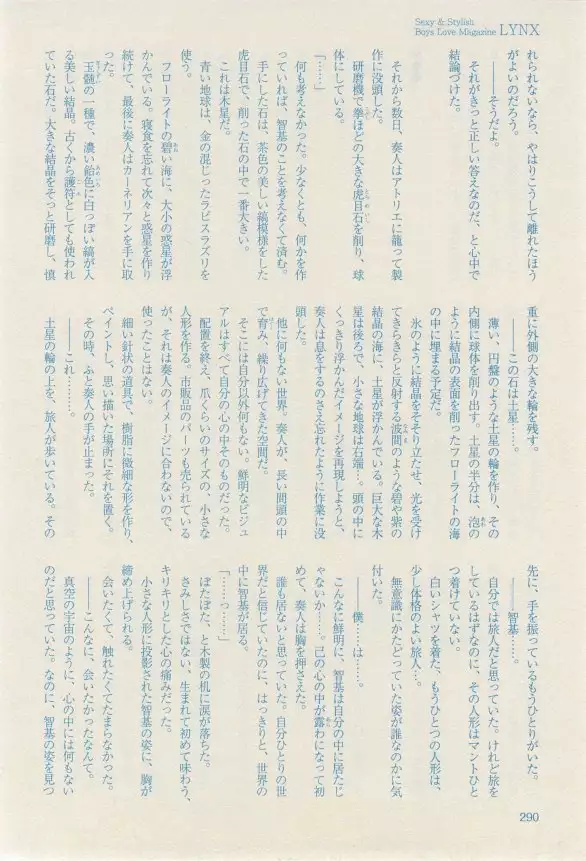 Sexy & Stylish
Boys Love Magazine LYNX
れられないなら、やはりこうして離れたほう
がよいのだろう。
――そうだよ。
それがきっと正しい答えなのだ、と心中で
結論づけた。
それから数日、奏人はアトリエに籠って製
作に没頭した。
研磨機で拳ほどの大きな虎目石を削り、球
体にしている。
「……」
何も考えなかった。少なくとも、何かを作
っていれば、智基のことを考えなくて済む。
手にした石は、茶色の美しい縞模様をした
虎目石で、削った石の中で一番大きい。
これは木星だ。
青い地球は、金の混じったラピスラズリを
使う。
フローライトの碧い海に、大小の惑星が浮
かんでいる。寝食を忘れて次々と惑星を作り
続けて、最後に奏人はカーネリアンを手に取
った。
玉髄の一種で、濃い飴色に白っぽい縞が入
る美しい結晶。古くから護符としても使われ
ていた石だ。大きな結晶をそっと研磨し、慎
重に外側の大きな輪を残す。
――この石は土星……。
薄い、円盤のような土星の輪を作り、その
内側に球体を削り出す。土星の半分は、泡の
ように結晶の表面を削ったフローライトの海
の中に埋まる予定だ。
氷のように結晶をそそり立たせ、光を受け
てきらきらと反射する波間のような碧や紫の
結晶の海に、土星が浮かんでいる。巨大な木
星は後ろで、小さな地球は右端…。頭の中に
くっきり浮かんだイメージを再現しようと、
奏人は息をするのさえ忘れたように作業に没
頭した。
他に何もない世界。奏人が、長い間頭の中
で育み、繰り広げてきた空間だ。
そこには自分以外何もない。鮮明なビジュ
アルはすべて自分の心の中そのものだった。
配置を終え、爪くらいのサイズの、小さな
人形を作る。市販品のパーツも売られている
が、それは奏人のイメージに合わないので、
使ったことはない。
細い針状の道具で、樹脂に微細な形を作り、
ペイントし、思い描いた場所にそれを置く。
その時、ふと奏人の手が止まった。
――これ………。
土星の輪の上を、旅人が歩いている。その
先に、手を振っているもうひとりがいた。
――智基……。
自分では旅人だと思っていた。けれど旅を
しているはずなのに、その人形はマントひと
つ着けていない。
白いシャツを着た、もうひとつの人形は、
少し体格のよい旅人…。
無意識にかたどっていた姿が誰なのかに気
付いた。
――僕……は……。
こんなに鮮明に、智基は自分の中に居たじ
ゃないか……。己の心の中が露わになって初
めて、奏人は胸を押さえた。
誰も居ないと思っていた。自分ひとりの世
界だと信じていたのに、はっきりと、世界の
中に智基が居る。
「………っ……」
ぽたぽた、と木製の机に涙が落ちた。
さみしさではない、生まれて初めて味わう、
キリキリとした心の痛みだった。
小さな人形に投影された智基の姿に、胸が
締め上げられる。
会いたくて、触れたくてたまらなかった。
――こんなに、会いたかったなんて。
真空の宇宙のように、心の中には何もない
のだと思っていた。なのに、智基の姿を見つ
290